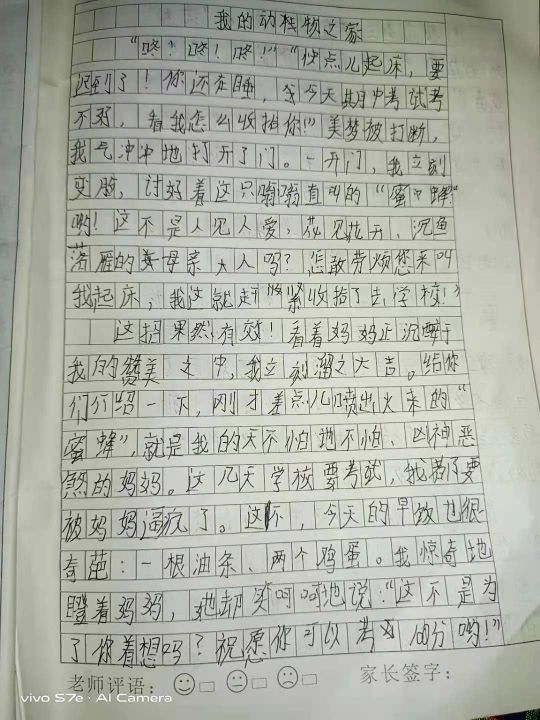 我的动植物之家
“咚！咚！咚！”“快点儿起床，要
迟到了！你还在睡，今天期中考试考
不好，看我怎么收拾你！”美梦被打断，
我气冲冲地打开了门。一开门，我立刻
变脸，讨好着这只嗡嗡直叫的“蜜蜂”
哟！这不是人见人爱，花见花开，沉鱼
落雁的母亲大人吗？怎敢劳烦您来叫
我起床，我这就赶紧收拾了去学校！
这招果然有效！看着妈妈正沉醉于
我的赞美之中，我立刻溜之大吉。给你
们介绍一下，刚才差点儿喷出火来的“
蜜蜂”，就是我的天不怕地不怕、凶神恶
煞的妈妈。这几天学校要考试，我都要
被妈妈逼疯了。这不，今天的早饭也很
奇葩：一根油条、两个鸡蛋。我惊奇地
瞪着妈妈，她却笑呵呵地说：“这不是为
了你着想吗？祝愿你可以考100分哟！”
老师评语：
家长签字：
vivo S7e · AI Camera